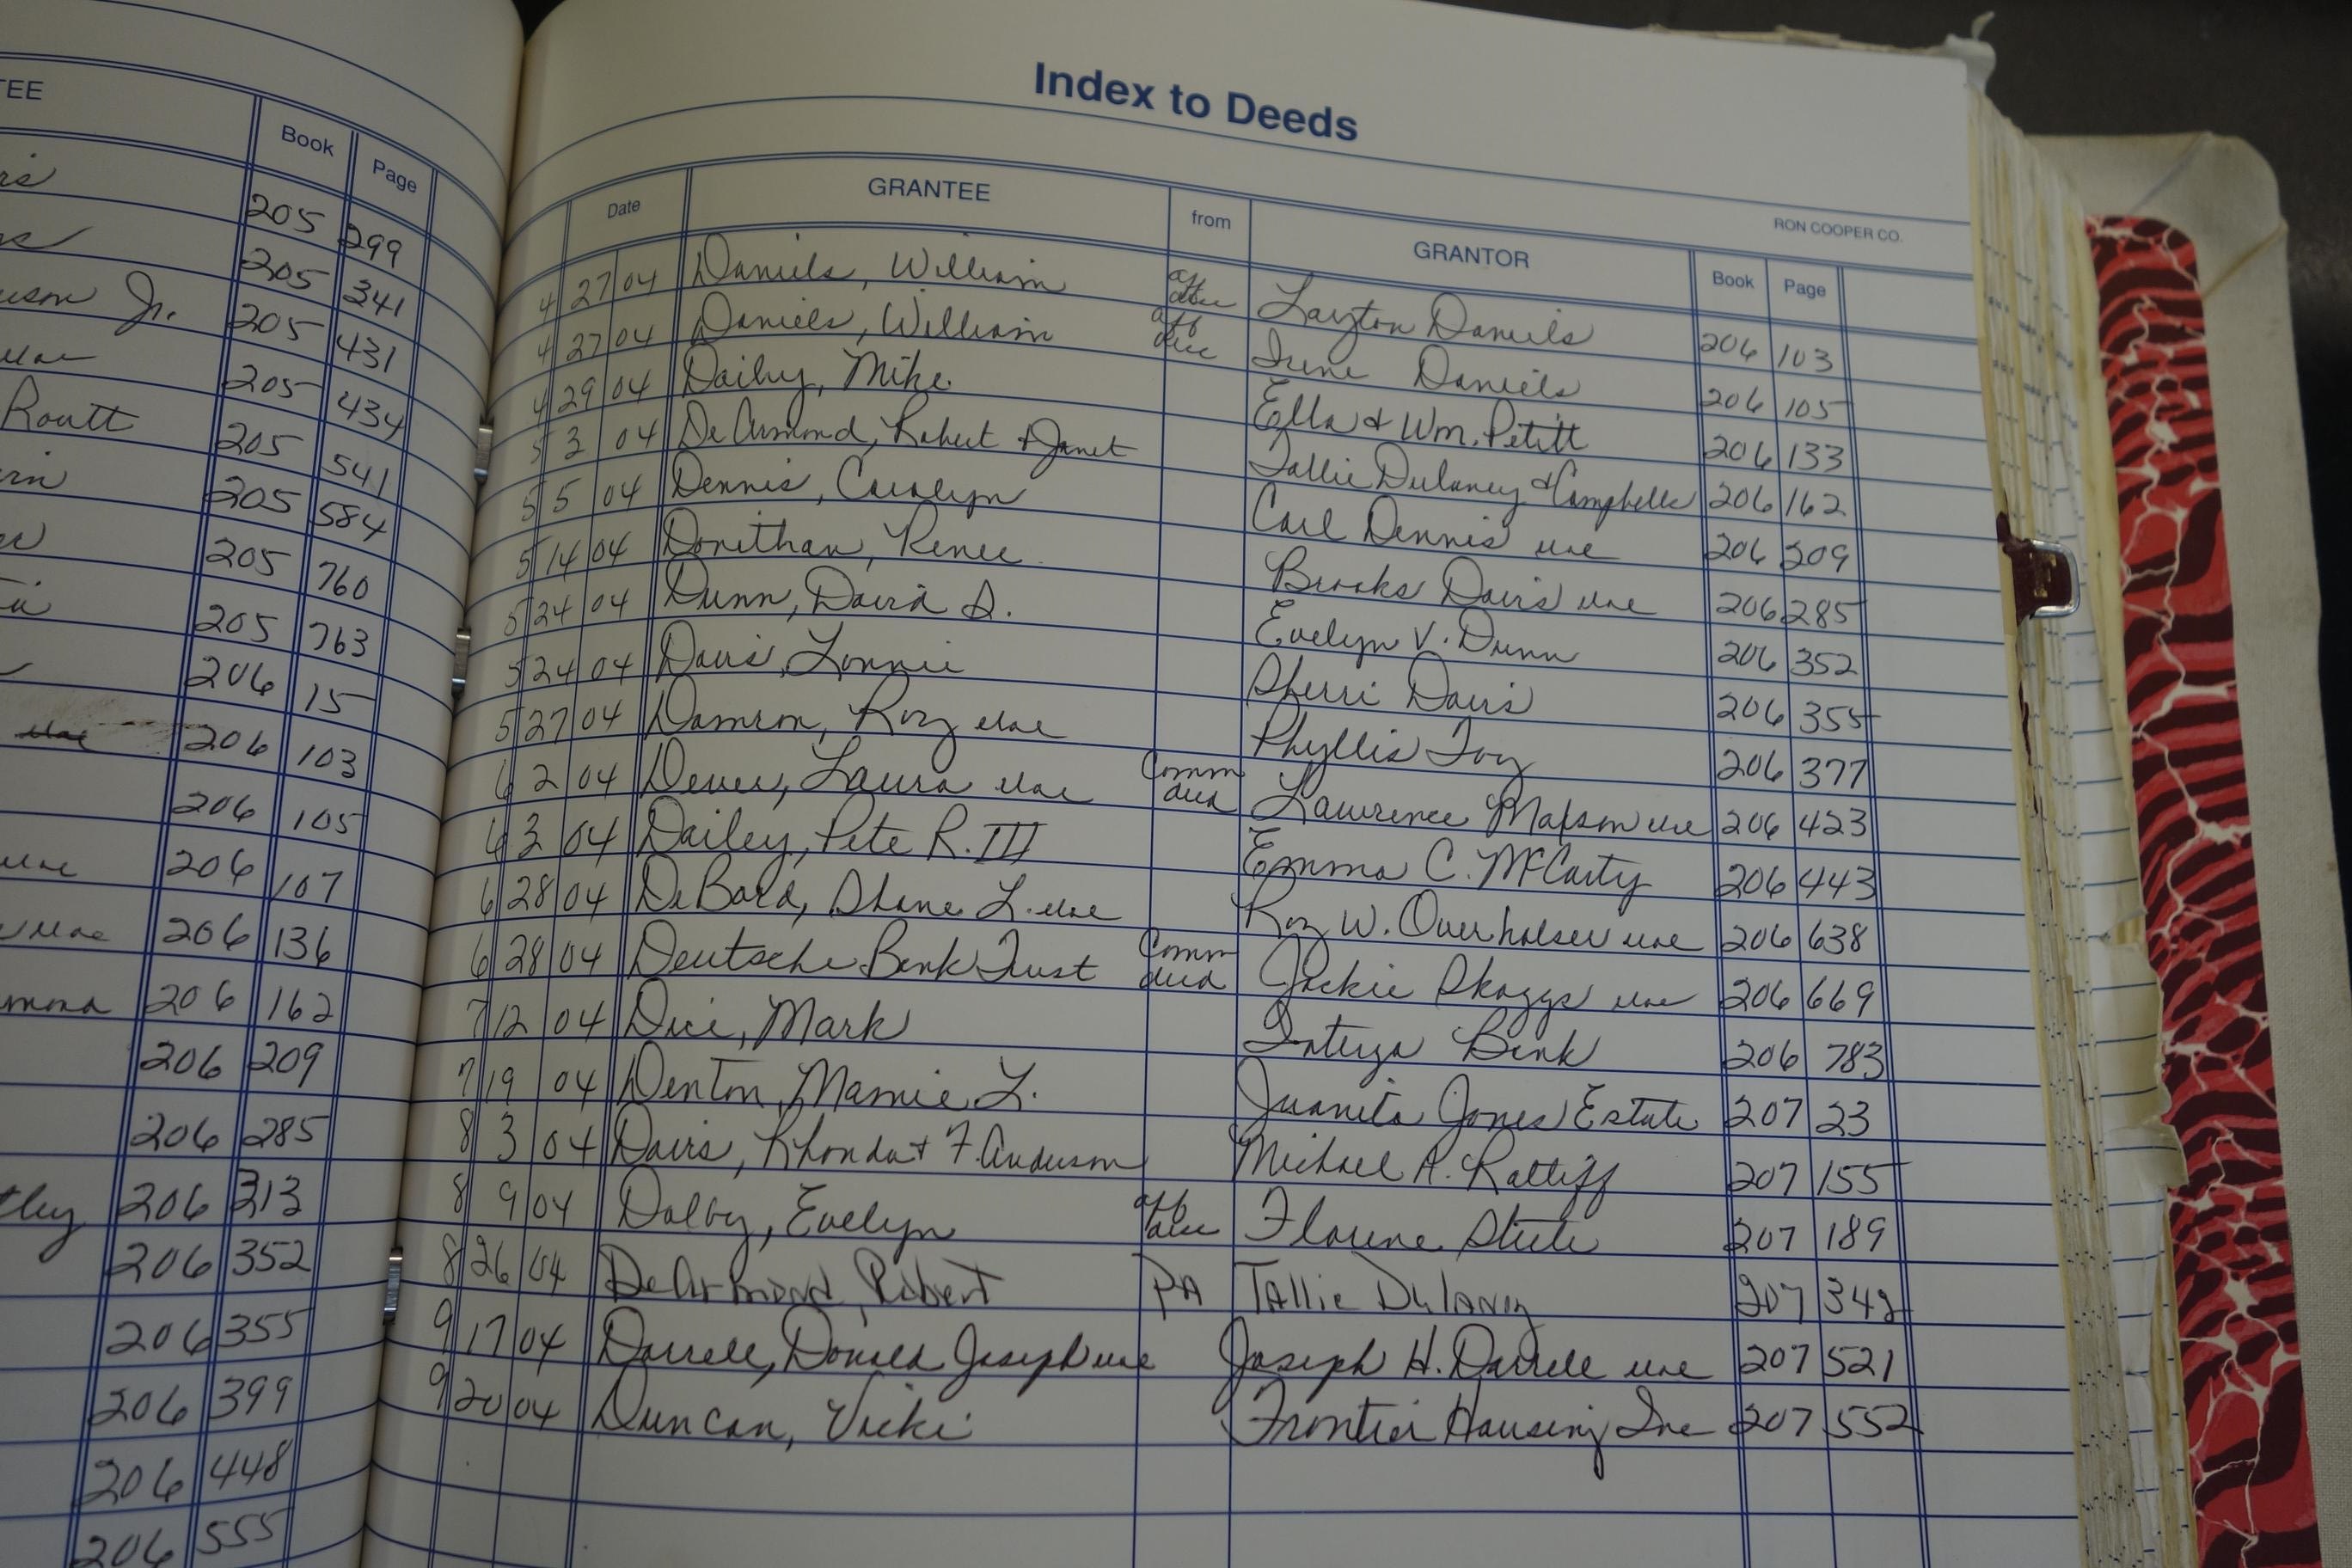 TEE Book Page
205 299
205 341
uson Jr. 205 431
205 434
Routt 205 541
205 584
205 760
205 763
206 15
206 103
206 105
206 107
206 136
206 162
206 209
206 285
206 313
206 352
206 355
206 399
206 448
206 555
Index to Deeds
RON COOPER CO.
Date GRANTEE from GRANTOR Book Page
4 27 04 Daniels, William aff dec Layton Daniels 206 103
4 27 04 Daniels, William aff dec Irene Daniels 206 105
4 29 04 Dailey, Mike Ella & Wm. Petitt 206 133
5 3 04 DeArmond, Robert & Janet Tallie Dulaney & Campbells 206 162
5 5 04 Dennis, Carolyn Carl Dennis uxe 206 209
5 14 04 Donithan, Renee Brooks Davis uxe 206 285
5 24 04 Dunn, David S. Evelyn V. Dunn 206 352
5 24 04 Davis, Lonnie Sherri Davis 206 355
5 27 04 Damron, Roy uxe Phyllis Foy 206 377
6 2 04 Laura uxe Comm deed Lawrence uxe 206 423
6 3 04 Dailey, Pete R. III Emma C. McCarty 206 443
6 28 04 DeBord, Shane L. uxe Roy W. Overholser uxe 206 638
6 28 04 Deutsche Bank Trust Comm deed Jackie Skaggs uxe 206 669
7 12 04 Mark Bank 206 783
7 19 04 Denton, Mamie L. Juanita Jones Estate 207 23
8 3 04 Davis, Rhonda & F. Anderson Michael A. Ratliff 207 155
8 9 04 Dalby, Evelyn aff dec 207 189
8 26 04 DeArmond, Robert PA Tallie Dulaney 207 342
9 17 04 Darrell, Donald Joseph uxe Joseph H. Darrell uxe 207 521
9 20 04 Duncan, Vicki Frontier Housing Inc 207 552